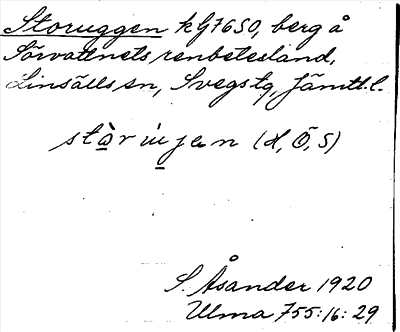 Storuggen kG7650, berg å
Sörvattnets renbetesland,
Linsälls sn, Svegs tg, Jämtl.l.
(H, Ö, S)
S. Åsander 1920
Ulma 755:16:29